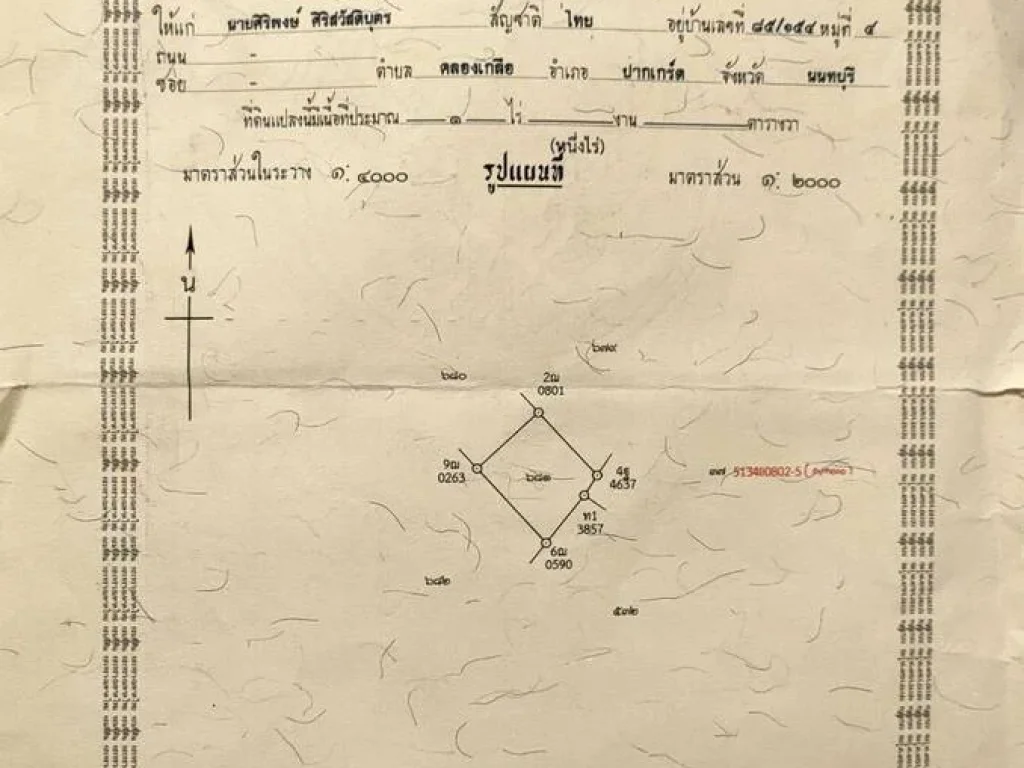 ให้แก่ นายศิริพงษ์ ศิริสวัสดิบุตร สัญชาติ ไทย อยู่บ้านเลขที่ ๘๕/๑๕๔ หมู่ที่ ๔
ถนน -
ซอย - ตำบล คลองเกลือ อำเภอ ปากเกร็ด จังหวัด นนทบุรี
ที่ดินแปลงนี้มีเนื้อที่ประมาณ ๑ ไร่ งาน ตารางวา
(หนึ่งไร่)
มาตราส่วนในระวาง ๑: ๔๐๐๐ รูปแผนที่ มาตราส่วน ๑: ๒๐๐๐
น
๖๗๙
๖๘๐
2ฌ
0801
9ฌ
0263
๖๘๑
4ฐ
4637
๓๗ 513480802-5
ท1
3857
6ฌ
0590
๖๘๒
๕๓๒